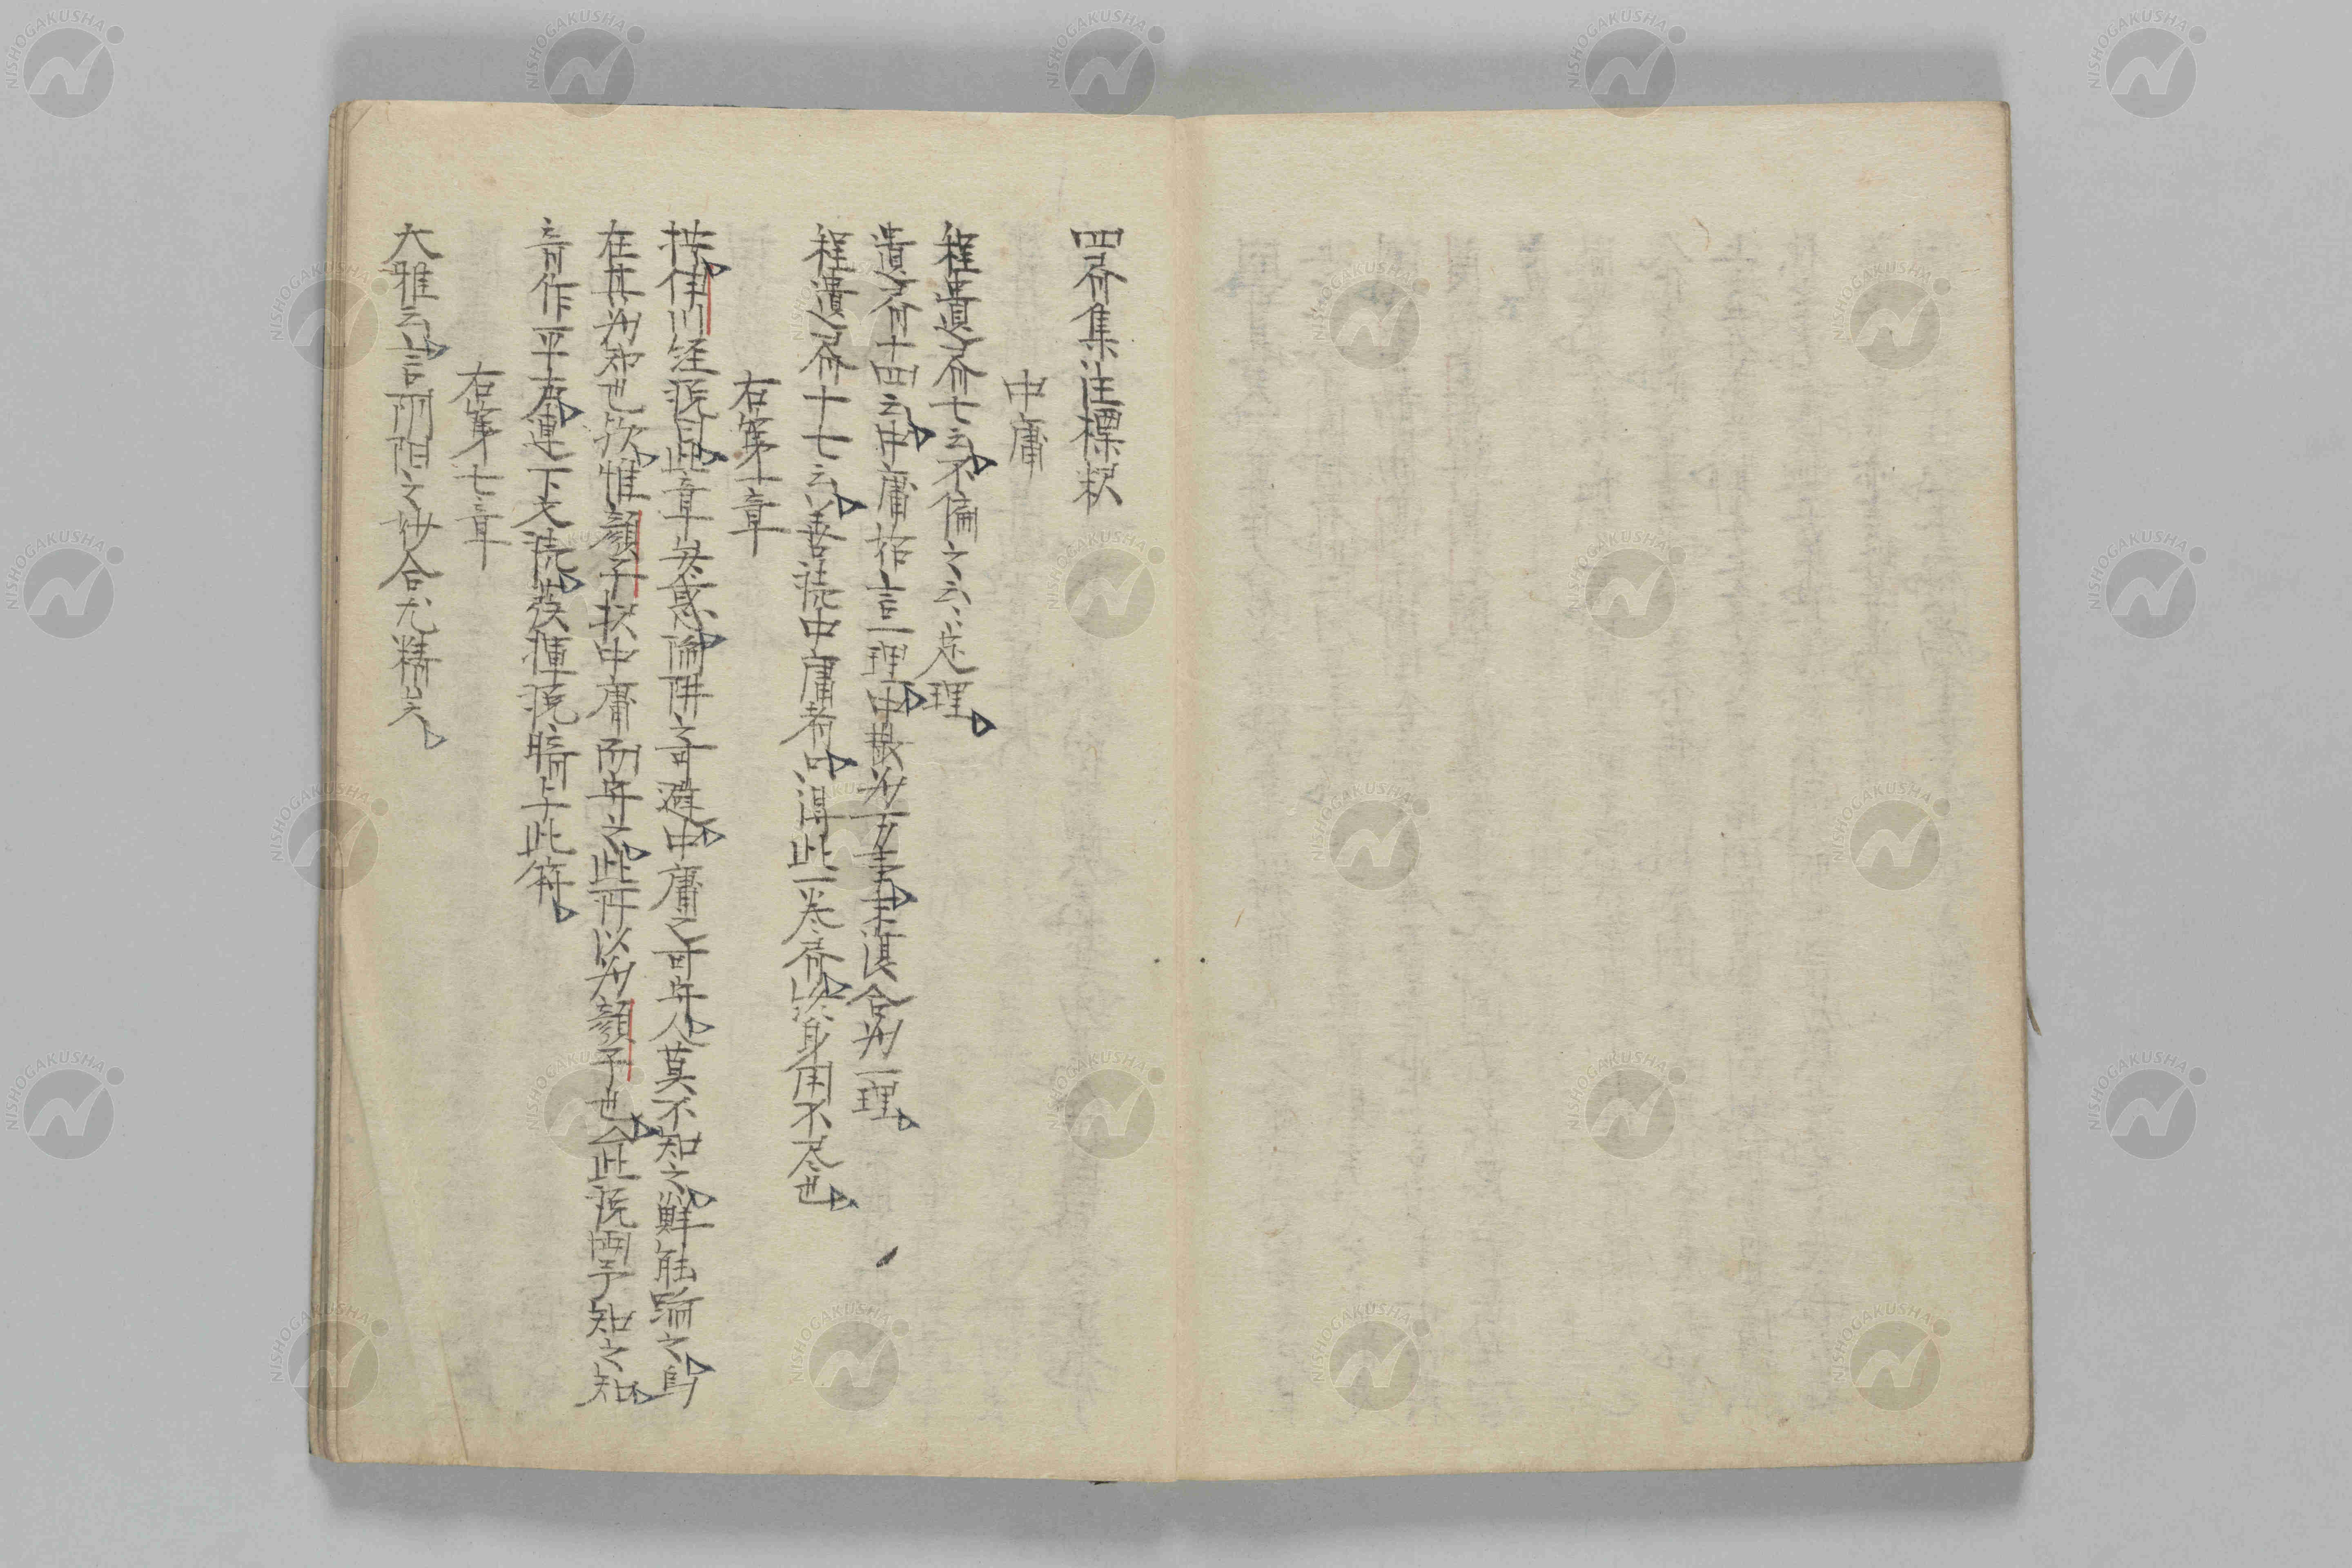 四書集注標釈
中庸
程遺書七云不偏之云々定理
遺書十四云中庸始言一理中散為万事末復合為一理
程遺書十七云善読中庸者只得此一巻書終身用不尽也
右第一章
按伊川経説此章毎惑陥阱之可避中庸之可守人莫不知之鮮能蹈之烏
在其為知也歟惟顔子択中庸而守之此所以為顔子也合此説両予知之知
音作平而連下文読蔡模説暗与此符
右第七章
大雅云言陰陽之妙合尤精矣
NISHOGAKUSHA